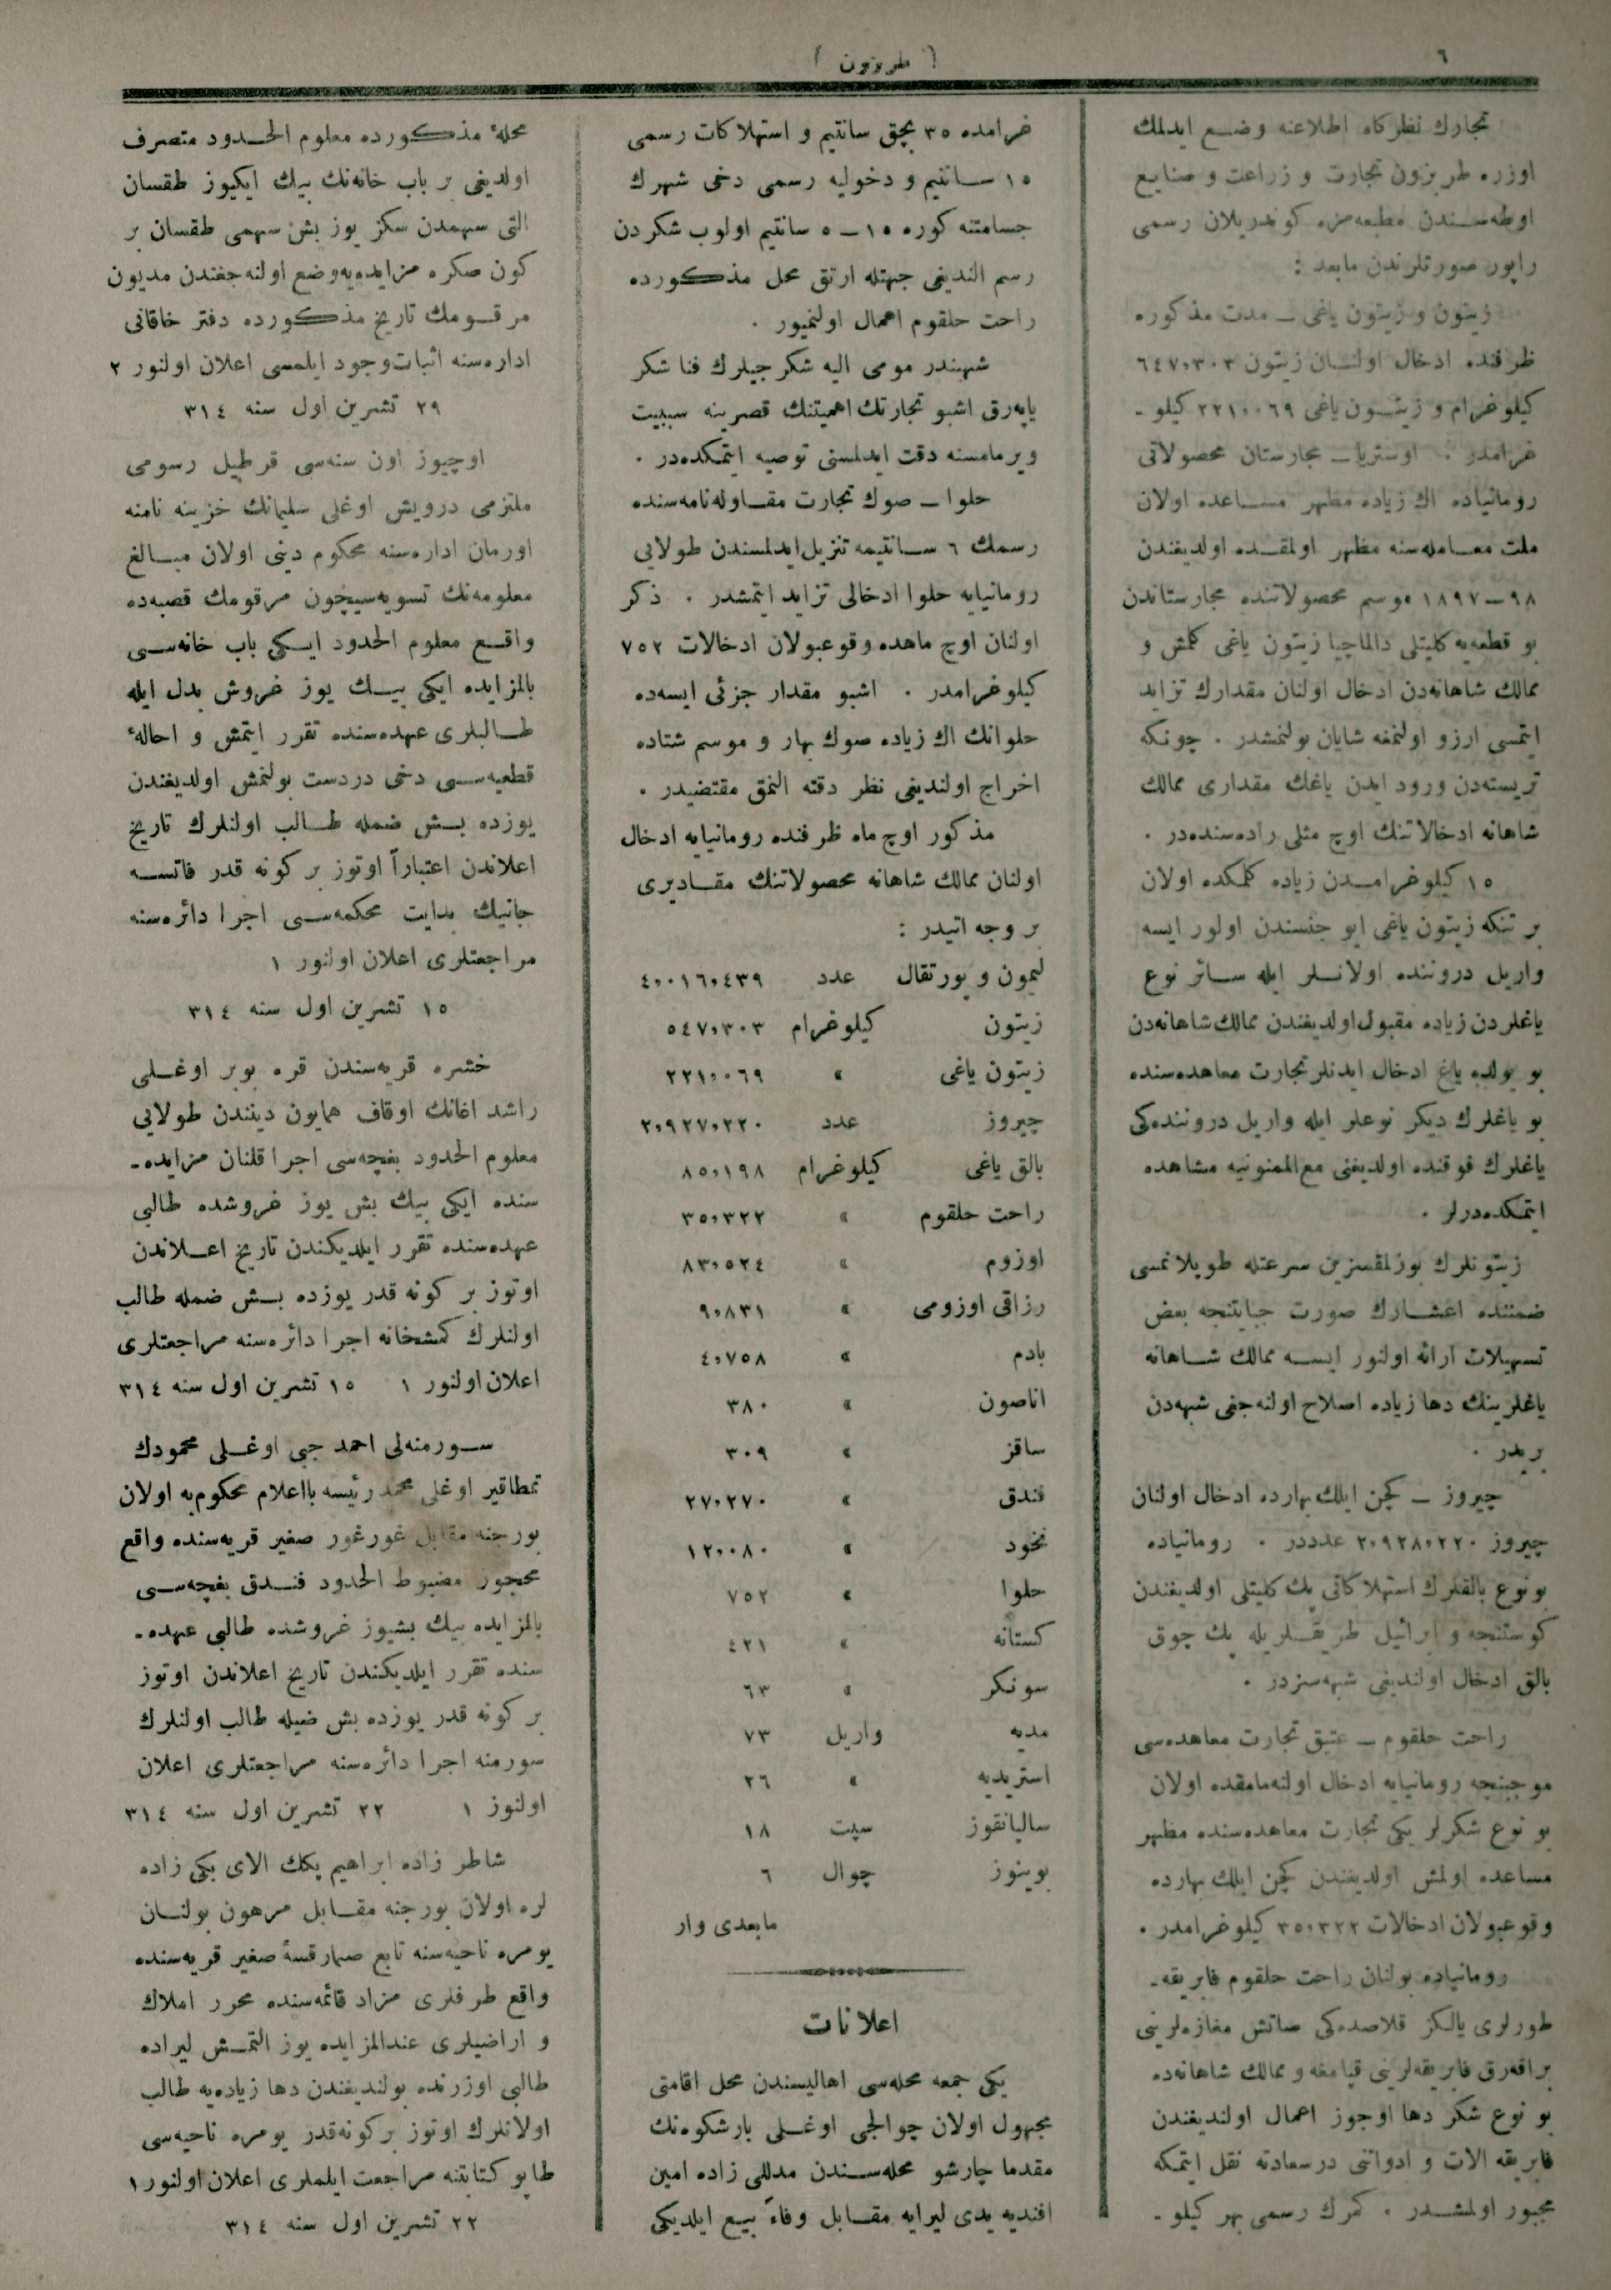 ٦
( طربزون )
تجارك نظركاه اطلاعنه وضع ايدلمك
اوزره طربزون تجارت و زراعت و صنايع
اوطه‌سندن مطبعه‌مزه كوندريلان رسمى
راپور صورتلرندن مابعد :
زيتون و زيتون ياغى ــ مدت مذكوره
ظرفنده ادخال اولنان زيتون ٦٤٧,٣٠٣
كيلوغرام و زيتون ياغى ٢٢١,٠٦٩ كيلو ـ
غرامدر . اوستريا ــ مجارستان محصولاتى
رومانياده اك زياده مظهر مساعده اولان
ملت معامله‌سنه مظهر اولمقده اولديغندن
٩٨ــ١٨٩٧ موسم محصولاتنده مجارستاندن
بو قطعه‌يه كليتلى دالماچيا زيتون ياغى كلمش و
ممالك شاهانه‌دن ادخال اولنان مقدارك تزايد
ايتمسى ارزو اولنمغه شايان بولنمشدر . چونكه
تريسته‌دن ورود ايدن ياغك مقدارى ممالك
شاهانه ادخالاتنك اوچ مثلى راده‌سنده‌در .
١٥ كيلوغرامدن زياده كلمكده اولان
بر تنكه زيتون ياغى ايو جنسندن اولور ايسه
واريل دروننده اولانلر ايله سائر نوع
ياغلردن زياده مقبول اولديغندن ممالك شاهانه‌دن
بو يولده ياغ ادخال ايدنلر تجارت معاهده‌سنده
بو ياغلرك ديكر نوعلر ايله واريل دروننده‌كى
ياغلرك فوقنده اولديغنى مع‌الممنونيه مشاهده
ايتمكده‌درلر .
زيتونلرك بوزلمقسزين سرعتله طوپلانمسى
ضمننده اعشارك صورت جبايتنجه بعض
تسهيلات ارائه اولنور ايسه ممالك شاهانه
ياغلرينك دها زياده اصلاح اولنه‌جغى شبهه‌دن
بريدر .
چيروز ــ كچن ايلك بهارده ادخال اولنان
چيروز ٢,٩٢٨,٢٢٠ عدددر . رومانياده
بونوع بالقلرك استهلاكاتى پك كليتلى اولديغندن
كوستنجه و ابرائيل طريقلريله پك چوق
بالق ادخال اولنديغى شبهه‌سزدر .
راحت حلقوم ــ عتيق تجارت معاهده‌سى
موجبنجه رومانيايه ادخال اولنه‌مامقده اولان
بو نوع شكرلر يكى تجارت معاهده‌سنده مظهر
مساعده اولمش اولديغندن كچن ايلك بهارده
وقوعبولان ادخالات ٣٥,٣٢٢ كيلوغرامدر .
رومانياده بولنان راحت حلقوم فابريقه ـ
طورلرى يالكز قلاصده‌كى صاتش مغازه‌لرينى
براقه‌رق فابريقه‌لرينى قپامغه و ممالك شاهانه‌ده
بو نوع شكر دها اوجوز اعمال اولنديغندن
فابريقه الات و ادواتنى درسعادته نقل ايتمكه
مجبور اولمشدر . كمرك رسمى بهر كيلو ـ
غرامده ٣٥ بچق سانتيم و استهلاكات رسمى
١٥ سانتيم و دخوليه رسمى دخى شهرك
جسامتنه كوره ١٥ ــ ٥ سانتيم اولوب شكردن
رسم النديغى جهتله ارتق محل مذكورده
راحت حلقوم اعمال اولنميور .
شهبندر مومى اليه شكرجيلرك فنا شكر
ياپه‌رق اشبو تجارتك اهميتنك قصرينه سببيت
ويرمامسنه دقت ايدلمسنى توصيه ايتمكده‌در .
حلوا ــ صوك تجارت مقاوله‌نامه‌سنده
رسمك ٦ سانتيمه تنزيل ايدلمسندن طولايى
رومانيايه حلوا ادخالى تزايد ايتمشدر . ذكر
اولنان اوچ ماهده وقوعبولان ادخالات ٧٥٢
كيلوغرامدر . اشبو مقدار جزئى ايسه‌ده
حلوانك اك زياده صوك بهار و موسم شتاده
اخراج اولنديغى نظر دقته النمق مقتضيدر .
مذكور اوچ ماه ظرفنده رومانيايه ادخال
اولنان ممالك شاهانه محصولاتنك مقاديرى
بر وجه اتيدر :
ليمون و پورتقال عدد ٤,٠١٦,٤٣٩
زيتون كيلوغرام ٥٤٧,٣٠٣
زيتون ياغى » ٢٢١,٠٦٩
چيروز عدد ٢,٩٢٧,٢٢٠
بالق ياغى كيلوغرام ٨٥,١٩٨
راحت حلقوم » ٣٥,٣٢٢
اوزوم » ٨٣,٥٢٤
رزاقى اوزومى » ٩,٨٣١
بادم » ٤,٧٥٨
اناصون » ٣٨٠
ساقز » ٣٠٩
فندق » ٢٧,٢٧٠
نخود » ١٢,٠٨٠
حلوا » ٧٥٢
كستانه » ٤٢١
سونكر » ٦٣
مديه واريل ٧٣
استريديه » ٢٦
ساليانقوز سپت ١٨
بوينوز چوال ٦
مابعدى وار
اعلانات
يكى جمعه محله‌سى اهاليسندن محل اقامتى
مجهول اولان چوالجى اوغلى بارشكوه‌نك
مقدما چارشو محله‌سندن مدللى زاده امين
افنديه يدى ليرايه مقابل وفاءً بيع ايلديكى
محلهٔ مذكورده معلوم الحدود متصرف
اولديغى بر باب خانه‌نك بيك ايكيوز طقسان
التى سهمدن سكز يوز بش سهمى طقسان بر
كون صكره مزايده‌يه وضع اولنه‌جغندن مديون
مرقومك تاريخ مذكورده دفتر خاقانى
اداره‌سنه اثبات وجود ايلمسى اعلان اولنور ٢
٢٩ تشرين اول سنه ٣١٤
اوچيوز اون سنه‌سى قرطيل رسومى
ملتزمى درويش اوغلى سليمانك خزينه نامنه
اورمان اداره‌سنه محكوم دينى اولان مبالغ
معلومه‌نك تسويه‌سيچون مرقومك قصبه‌ده
واقع معلوم الحدود ايكى باب خانه‌سى
بالمزايده ايكى بيك يوز غروش بدل ايله
طالبلرى عهده‌سنده تقرر ايتمش و احالهٔ
قطعيه‌سى دخى دردست بولنمش اولديغندن
يوزده بش ضمله طالب اولنلرك تاريخ
اعلاندن اعتباراً اوتوز بر كونه قدر فاتسه
جانيك بدايت محكمه‌سى اجرا دائره‌سنه
مراجعتلرى اعلان اولنور ١
١٥ تشرين اول سنه ٣١٤
خشره قريه‌سندن قره بوبر اوغلى
راشد اغانك اوقاف همايون دينندن طولايى
معلوم الحدود بغچه‌سى اجرا قلنان مزايده ـ
سنده ايكى بيك بش يوز غروشده طالبى
عهده‌سنده تقرر ايلديكندن تاريخ اعلاندن
اوتوز بر كونه قدر يوزده بش ضمله طالب
اولنلرك كمشخانه اجرا دائره‌سنه مراجعتلرى
اعلان اولنور ١ ١٥ تشرين اول سنه ٣١٤
سورمنه‌لى احمد جبى اوغلى محمودك
اوغلى محمد رئيسه بااعلام محكوم‌به اولان
بورجنه مقابل غورغور صغير قريه‌سنده واقع
محجوز مضبوط الحدود فندق بغچه‌سى
بالمزايده بيك بشيوز غروشده طالبى عهده ـ
سنده تقرر ايلديكندن تاريخ اعلاندن اوتوز
بر كونه قدر يوزده بش ضميله طالب اولنلرك
سورمنه اجرا دائره‌سنه مراجعتلرى اعلان
اولنوز ١ ٢٢ تشرين اول سنه ٣١٤
شاطر زاده ابراهيم بكك الاى بكى زاده
لره اولان بورجنه مقابل مرهون بولنان
يومره ناحيه‌سنه تابع صغير قريه‌سنده
واقع طرفلرى مزاد قائمه‌سنده محرر املاك
و اراضيلرى عندالمزايده يوز التمش ليراده
طالبى اوزرنده بولنديغندن دها زياده‌يه طالب
اولانلرك اوتوز بركونه‌قدر يومره ناحيه‌سى
طاپو كتابتنه مراجعت ايلملرى اعلان اولنور ١
٢٢ تشرين اول سنه ٣١٤